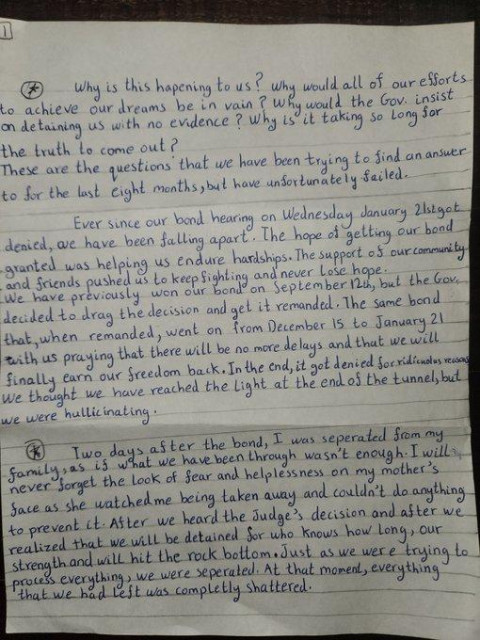 1
* Why is this hapening to us? Why would all of our efforts
to achieve our dreams be in vain? Why would the Gov. insist
on detaining us with no evidence? Why is it taking so long for
the truth to come out?
These are the questions that we have been trying to find an answer
to for the last eight months, but have unfortunately failed.
Ever since our bond hearing on Wednesday January 21st got
denied, we have been falling apart. The hope of getting our bond
granted was helping us endure hardships. The support of our community
and friends pushed us to keep fighting and never lose hope.
We have previously won our bond on September 12th, but the Gov.
decided to drag the decision and get it remanded. The same bond
that, when remanded, went on from December 15 to January 21
with us praying that there will be no more delays and that we will
finally earn our freedom back. In the end, it got denied for ridiculous reasons
We thought we have reached the light at the end of the tunnel, but
we were hullicinating.
* Two days after the bond, I was seperated from my
family, as if what we have been through wasn't enough. I will
never forget the look of fear and helplessness on my mother's
face as she watched me being taken away and couldn't do anything
to prevent it. After we heard the Judge's decision and after we
realized that we will be detained for who knows how long, our
strength and will hit the rock bottom. Just as we were trying to
process everything, we were seperated. At that moment, everything
that we had left was completly shattered.